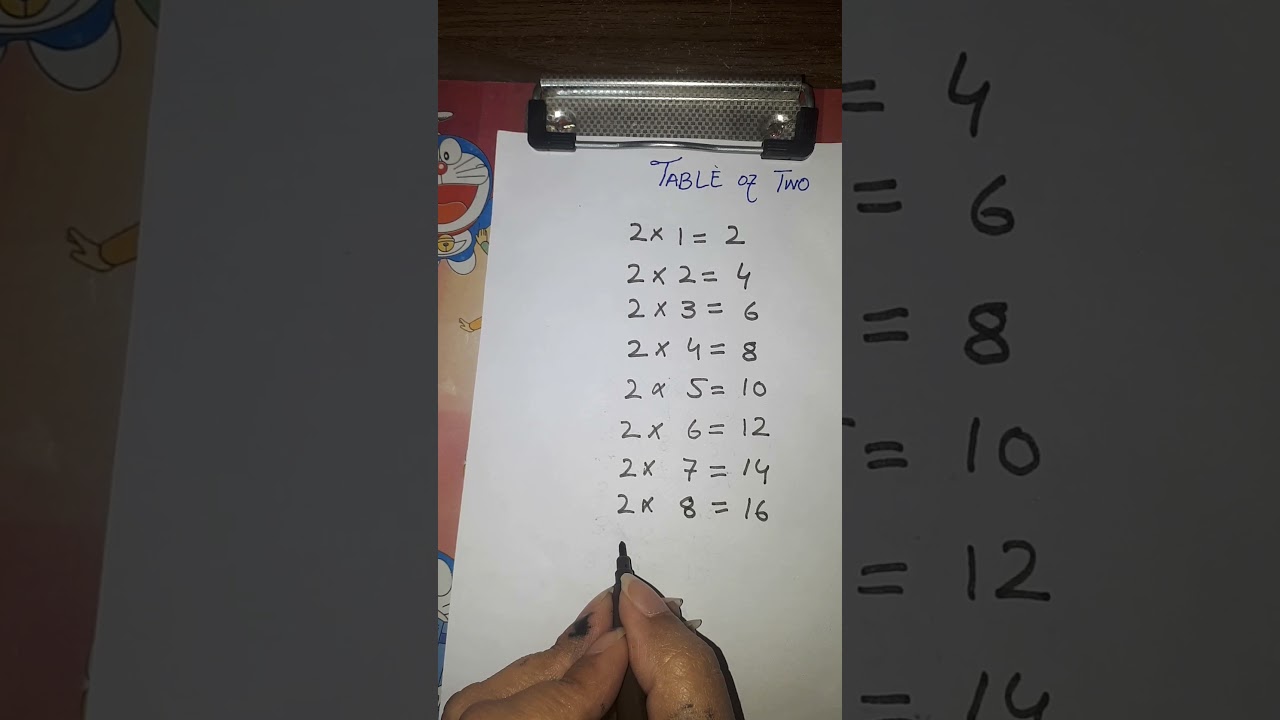 TABLE of Two
2 × 1 = 2
2 × 2 = 4
2 × 3 = 6
2 × 4 = 8
2 × 5 = 10
2 × 6 = 12
2 × 7 = 14
2 × 8 = 16
= 4
= 6
= 8
= 10
= 12
= 14